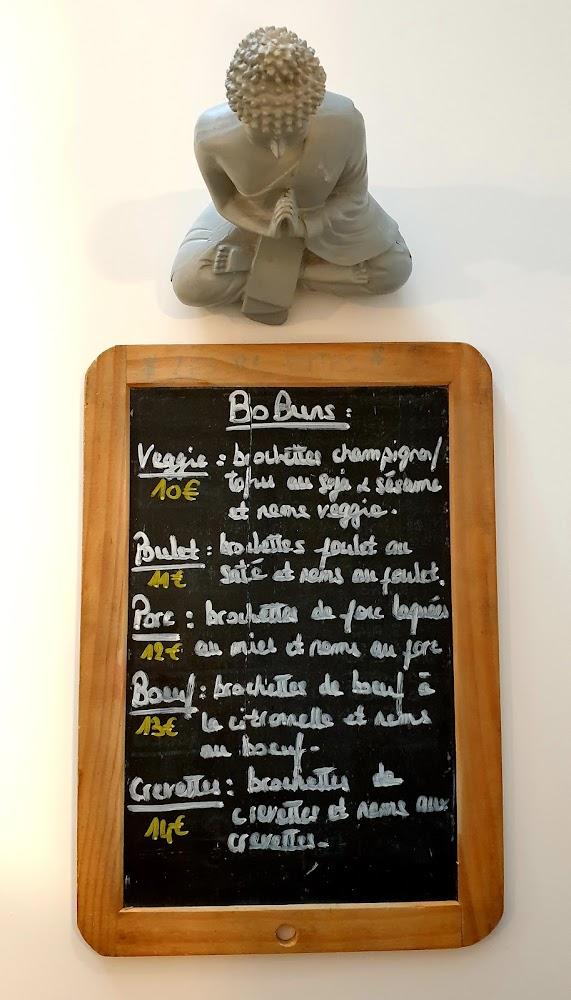 Bo Buns :
Veggie : brochettes champignon/
10€ tofu au soja & sésame
et nems veggie.
Poulet : brochettes poulet au
11€ saté et nems au poulet.
Porc : brochettes de porc laquées
12€ au miel et nems au porc
Boeuf : brochettes de boeuf à
13€ la citronnelle et nems
au boeuf.
Crevettes : brochettes de
14€ crevettes et nems aux
crevettes.